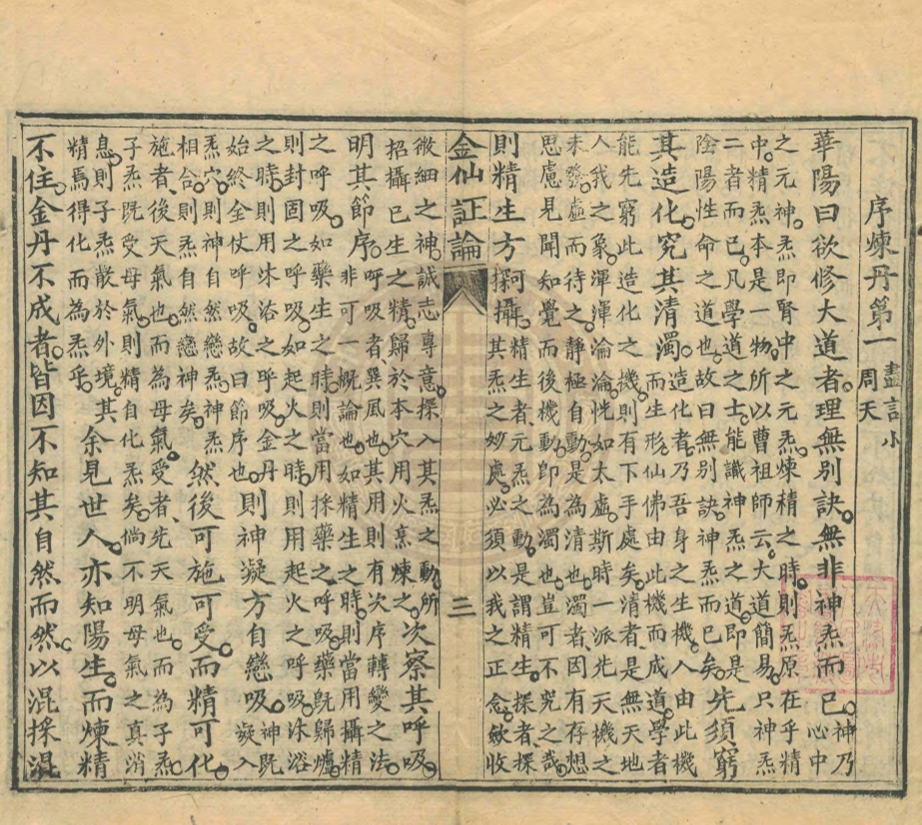 序煉丹第一 盡言小
周天
華陽曰欲修大道者理無別訣無非神炁而已 神乃
心中
之元神炁即腎中之元炁煉精之時則炁原在乎精
中精炁本是一物所以曹祖師云大道簡易只神炁
二者而已凡學道之士能識神炁之道即是
陰陽性命之道也故曰無別訣神炁而已矣
先須窮
其造化究其清濁 造化者乃吾身之生機人由此機
而生形仙佛由此機而成道學者
能先窮此造化之機則有下手處矣清者是無天地
人我之象渾渾淪淪恍如太虛斯時一派先天機之
未發虛而待之靜極自動是為清也濁者因有存想
思慮見聞知覺而後機動即為濁也豈可不究之哉
則精生方可探攝 精生者元炁之動是謂精生探者探
其炁之妙處必須以我之正念斂收
金仙証論 二
微細之神誠志專意探入其炁之動所
招攝已生之精歸於本穴用火烹煉之
次察其呼吸
明其節序 呼吸者巽風也其用則有次序轉變之法
非可一概論也如精生之時則當用攝精
之呼吸如藥生之時則當用採藥之呼吸藥既歸爐
則封固之呼吸如起火之時則用起火之呼吸沐浴
之時則用沐浴之呼吸金丹
始終全仗呼吸故曰節序也
則神凝方自戀吸 神既
凝入
炁穴則神自然戀炁神炁
相合則炁自然戀神矣
然後可施可受而精可化
施者後天氣也而為母氣受者先天氣也而為子炁
子炁既受母氣則精自化炁矣倘不明母氣之真消
息則子炁散於外境其
精焉得化而為炁乎
余見世人亦知陽生而煉精
不住金丹不成者皆因不知其自然而然以混採混